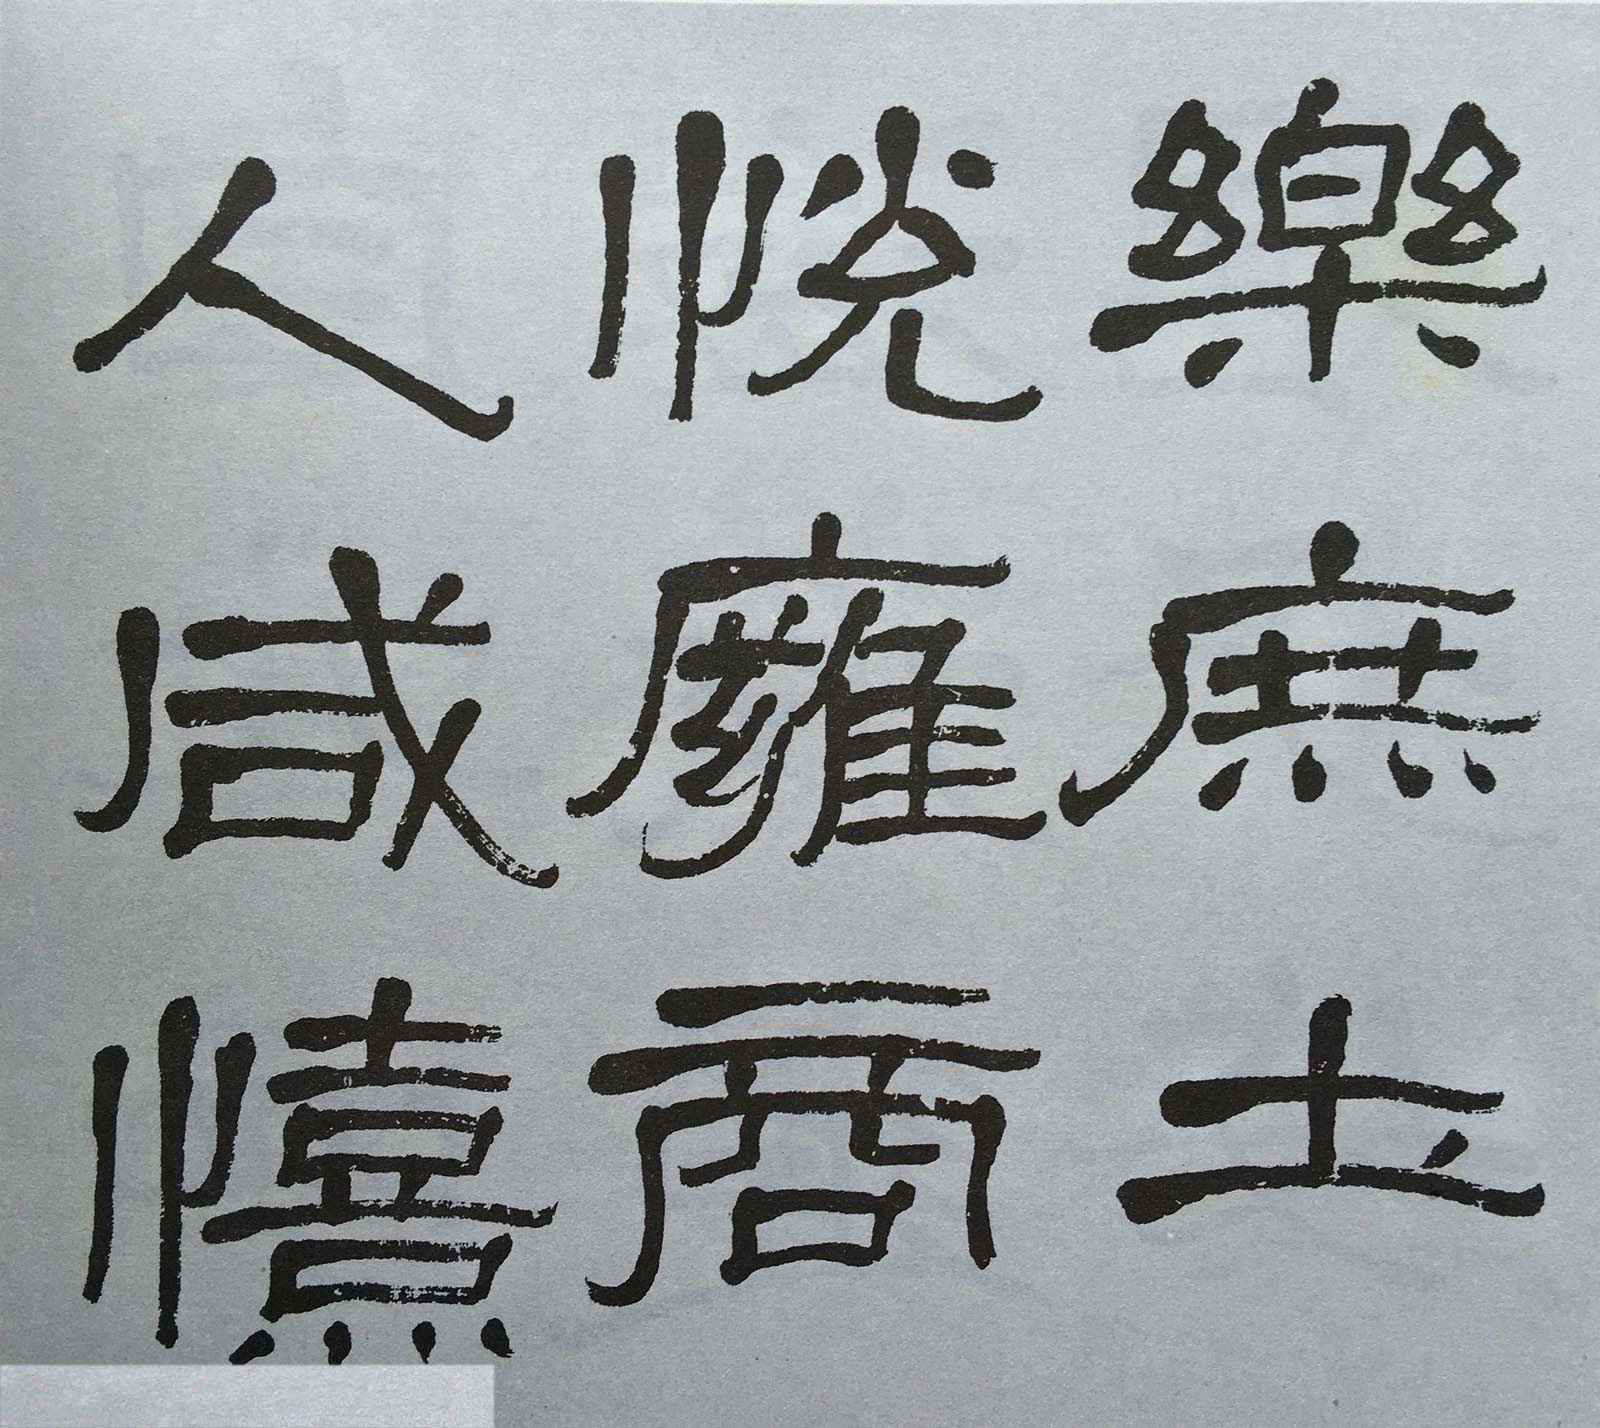 樂庶士
悅雍商
人咸憘